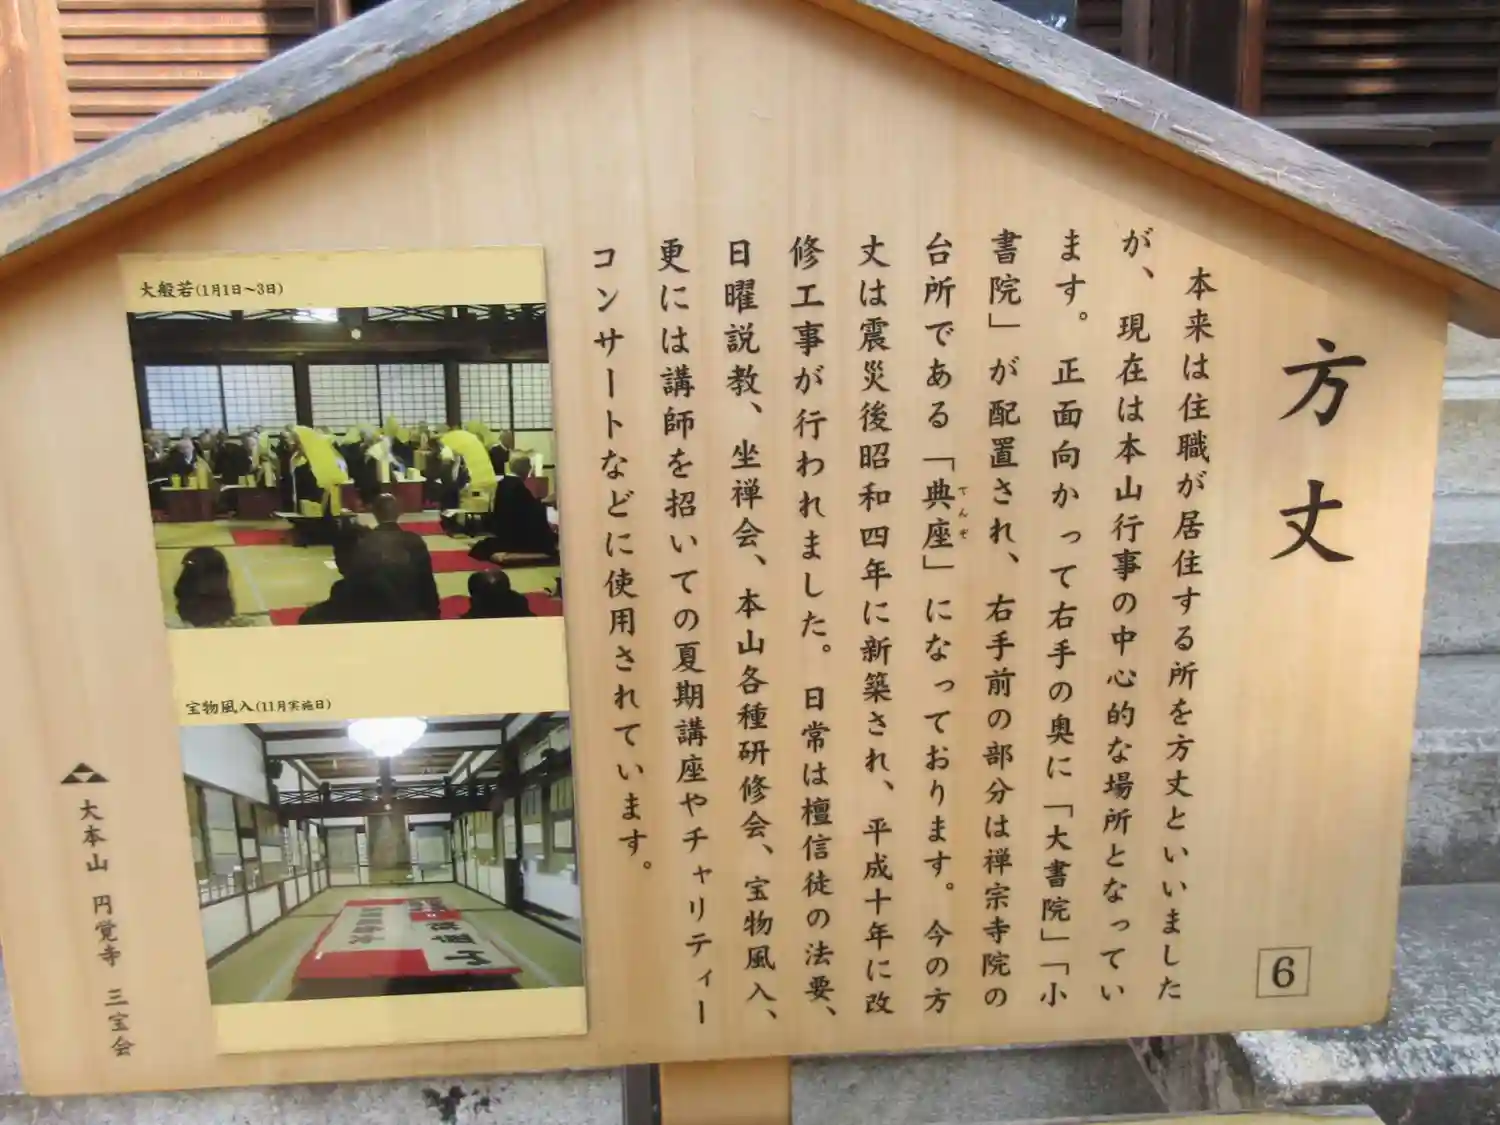 方丈
6
本来は住職が居住する所を方丈といいました
が、現在は本山行事の中心的な場所となってい
ます。正面向かって右手の奥に「大書院」「小
書院」が配置され、右手前の部分は禅宗寺院の
台所である「典座」になっております。今の方
てんぞ
丈は震災後昭和四年に新築され、平成十年に改
修工事が行われました。日常は檀信徒の法要、
日曜説教、坐禅会、本山各種研修会、宝物風入、
更には講師を招いての夏期講座やチャリティー
コンサートなどに使用されています。
大般若(1月1日〜3日)
宝物風入(11月実施日)
大本山 円覚寺 三宝会